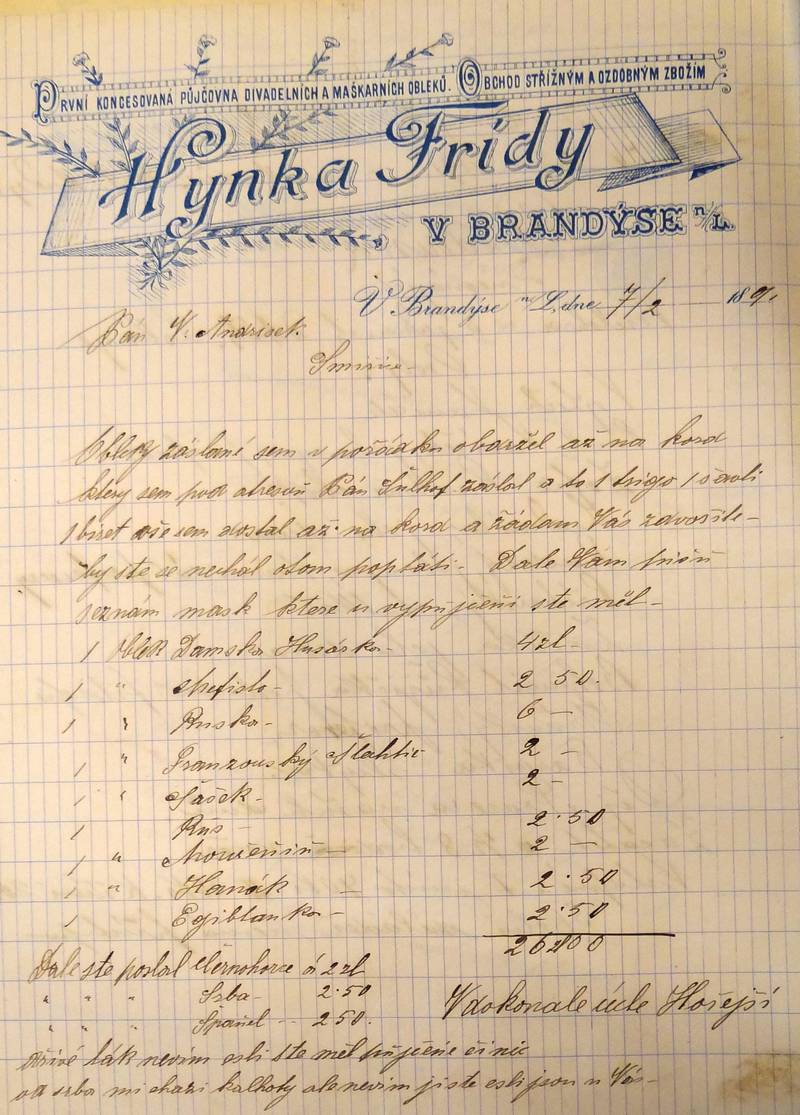 PRVNÍ KONCESOVANÁ PŮJČOVNA DIVADELNÍCH A MAŠKARNÍCH OBLEKŮ. OBCHOD STŘIŽNÝM A OZDOBNÝM ZBOŽÍM
Hynka Frídy
V BRANDÝSE n/L.
V Brandýse n/L, dne 7/2 1891
Pán V. Andrisek
Smiřic
Obleky zaslané sem v pořádku obdržel až na kord
ktery sem pod adresou Pán Šulhof zaslal a to 1 trigo 1 šavli
1 biret vše sem dostal až na kord a žádam Vás zdvořile
by ste se nechál otom poptáti. Dale Vám
seznám mask ktere u vypujčení ste měl
1 oblek Damska Husárka 4 zl
1 " Mefisto 2 50.
1 " Ruska 6 —
1 " Franzouský Šlahtic 2 —
1 " Šašek 2 —
1 Rus 2·50
1 " 2 —
1 " Hanák — 2·50
1 Egiblanka — 2·50
26 00
Dale ste poslal Černohorce á 2 zl
" " " Srba 2·50
" " " Španěl 2 50.
V dokonale úctě Hořejší
ták nevím esli ste měl pujčene či nic
od srba mi chazi kalhoty ale nevim jiste esli jsou u Vás